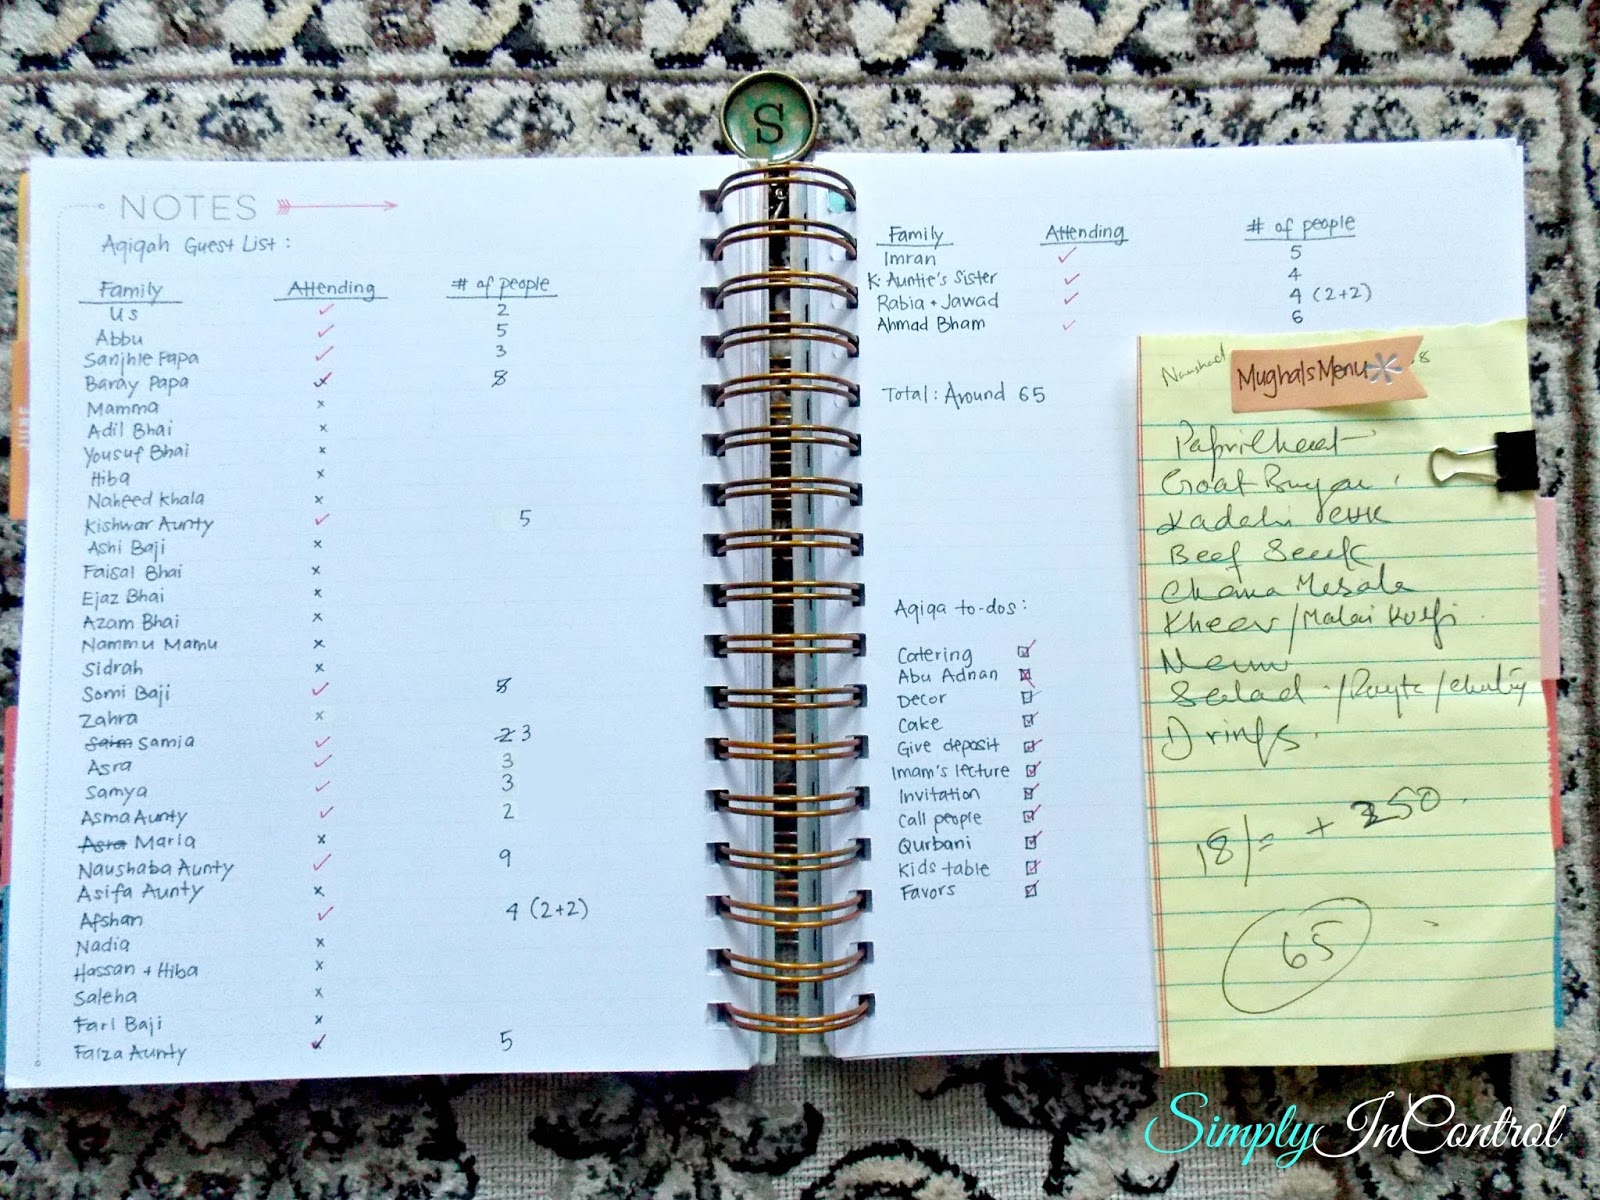 S
NOTES
Aqiqah Guest List :
Family Attending # of people
Us ✓ 2
Abbu ✓ 5
Sanjhle Papa ✓ 3
Baray Papa
Mamma x
Adil Bhai x
Yousuf Bhai x
Hiba x
Naheed Khala x
Kishwar Aunty ✓ 5
Ashi Baji x
Faisal Bhai x
Ejaz Bhai x
Azam Bhai x
Nammu Mamu x
Sidrah x
Somi Baji ✓
Zahra x
Saim Samia ✓ 2 3
Asra ✓ 3
Samya ✓ 3
Asma Aunty ✓ 2
Asra Maria x
Naushaba Aunty ✓ 9
Asifa Aunty x
Afshan ✓ 4 (2+2)
Nadia x
Hassan + Hiba x
Saleha x
Fari Baji x
Faiza Aunty ✓ 5
Family Attending # of people
Imran ✓ 5
K. Auntie's Sister ✓ 4
Rabia + Jawad ✓ 4 (2+2)
Ahmad Bham ✓ 6
Total : Around 65
Aqiqa to-dos :
Catering
Abu Adnan
Decor
Cake
Give deposit
Imam's lecture
Invitation
Call people
Qurbani
Kids table
Favors
Mughals Menu
Goat
Beef
Chana Masala
Kheer / Malai Kulfi
Salad / Rayta / Chutny
Drinks
18/= + 250
65
SimplyInControl